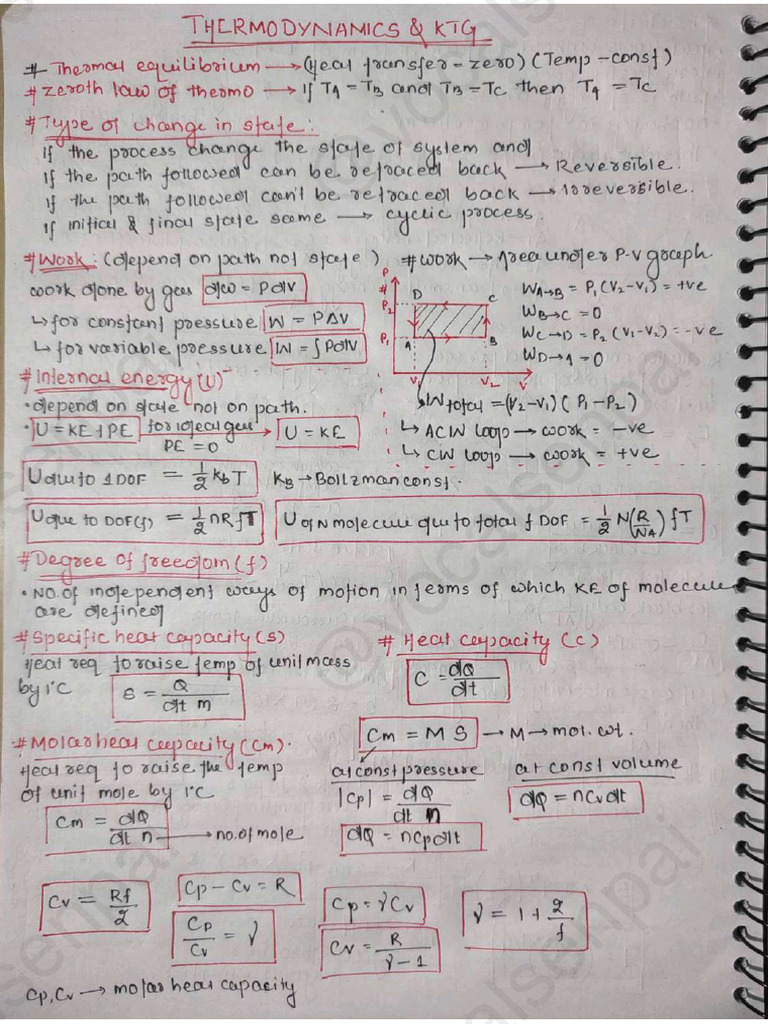 THERMODYNAMICS & KTG
# Thermal equilibrium → (Heat transfer - zero) (Temp - const)
# Zeroth law of thermo → If TA = TB and TB = TC then TA = TC
# Type of change in state:
If the process change the state of system and
If the path followed can be retraced back → Reversible.
If the path followed can't be retraced back → Irreversible.
If initial & final state same → cyclic process.
# Work: (depend on path not state)
work done by gas dw = PdV
↳ for constant pressure W = PΔV
↳ for variable pressure W = ∫PdV
# work → Area under P-V graph.
P
P2
P1
D
C
A
B
V1
V2
V
WA→B = P1(V2-V1) = +ve
WB→C = 0
WC→D = P2(V1-V2) = -ve
WD→A = 0
Wtotal = (V2-V1)(P1-P2)
↳ ACW loop → work = -ve
↳ CW loop → work = +ve
# Internal energy (U)
• depend on state not on path.
• U = KE + PE for ideal gas PE = 0 → U = KE
U due to 1 DOF = 1/2 kbT KB → Boltzman const.
U due to DOF(f) = 1/2 nRfT
U of N molecule due to total f DOF = 1/2 N(R/NA) fT
# Degree of freedom (f)
• NO. of independent ways of motion in terms of which KE of molecule
are defined
# Specific heat capacity (s)
Heat req to raise temp of unit mass
by 1°C S = Q/dt m
# Heat capacity (C)
C = dQ/dt
Cm = M S → M → mol. wt.
# Molar heat capacity (Cm).
Heat req to raise the temp
of unit mole by 1°C
Cm = dQ/dt n → no. of mole
at const pressure
|Cp| = dQ/dt n
dQ = nCpdt
at const volume
dQ = nCvdt
Cv = Rf/2
Cp - Cv = R
Cp/Cv = γ
Cp = γCv
Cv = R/γ-1
γ = 1 + 2/f
Cp, Cv → molar heat capacity
@vocalsenpai